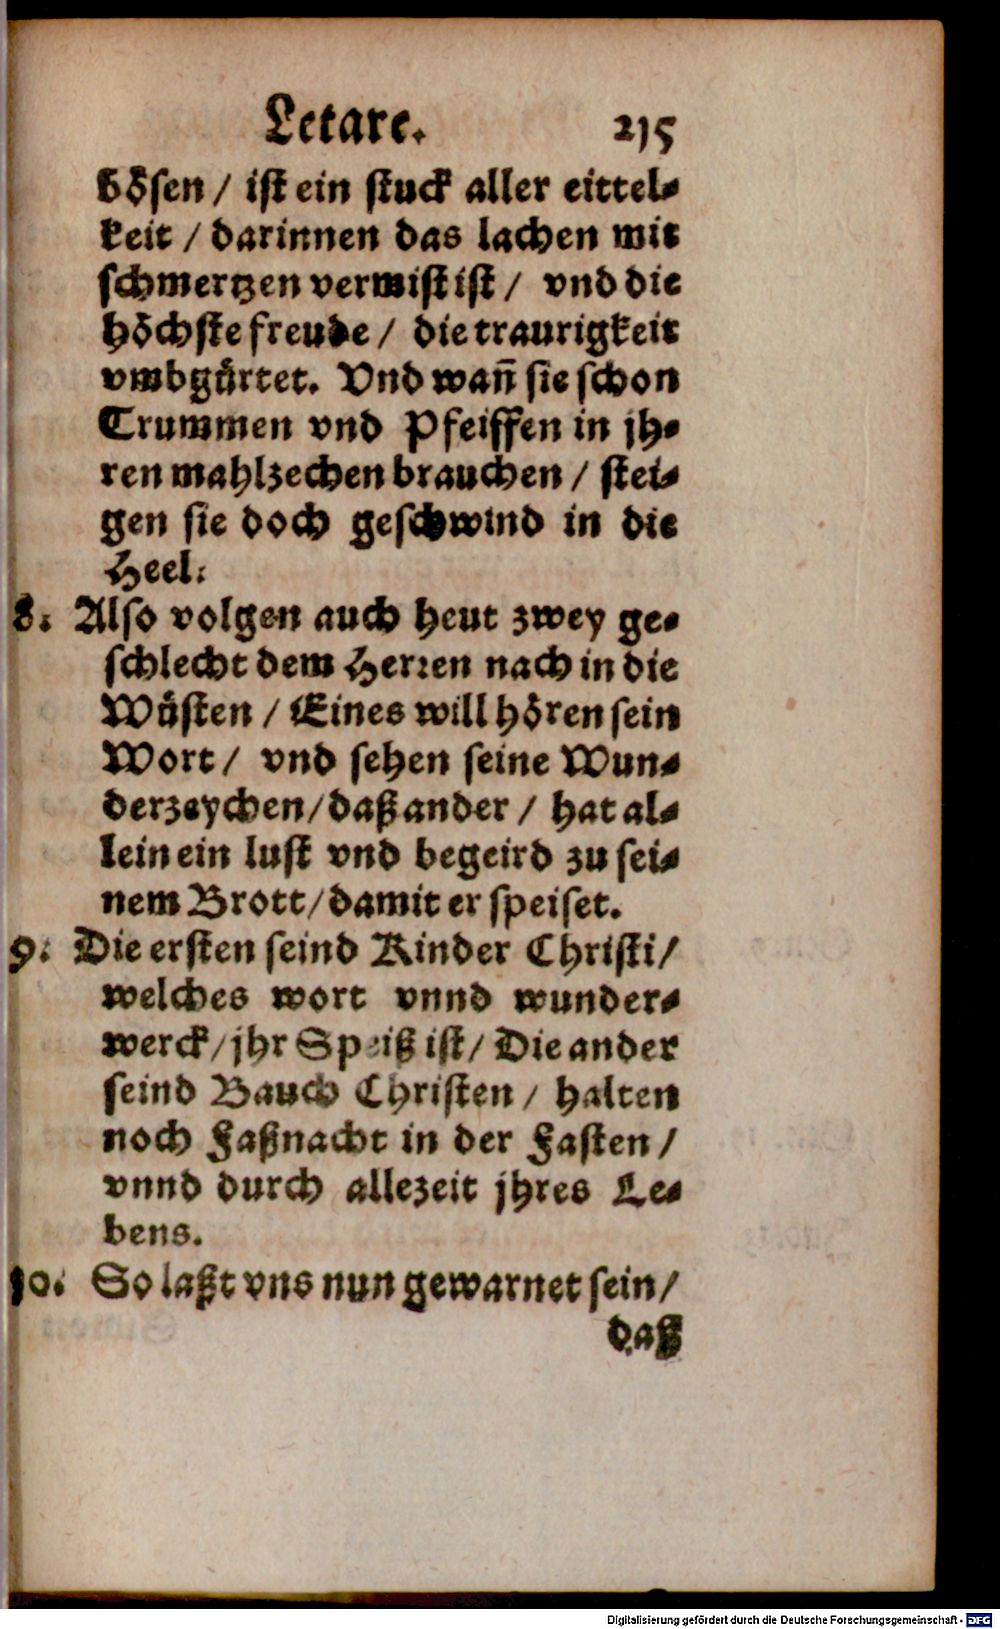 Letare. 215
bösen / ist ein stuck aller eittel-
keit / darinnen das lachen mit
schmertzen vermist ist / vnd die
höchste freude / die traurigkeit
vmbgürtet. Vnd wañ sie schon
Trummen vnd Pfeiffen in jh-
ren mahlzechen brauchen / stei-
gen sie doch geschwind in die
Heel.
8. Also volgen auch heut zwey ge-
schlecht dem Herren nach in die
Wüsten / Eines will hören sein
Wort / vnd sehen seine Wun-
derzeychen / daß ander / hat al-
lein ein lust vnd begeird zu sei-
nem Brott / damit er speiset.
9. Die ersten seind Kinder Christi /
welches wort vnnd wunder-
werck / jhr Speiß ist / Die ander
seind Bauch Christen / halten
noch Faßnacht in der Fasten /
vnnd durch allezeit jhres Le-
bens.
10. So laßt vns nun gewarnet sein /
daß
Digitalisierung gefördert durch die Deutsche Forschungsgemeinschaft - DFG